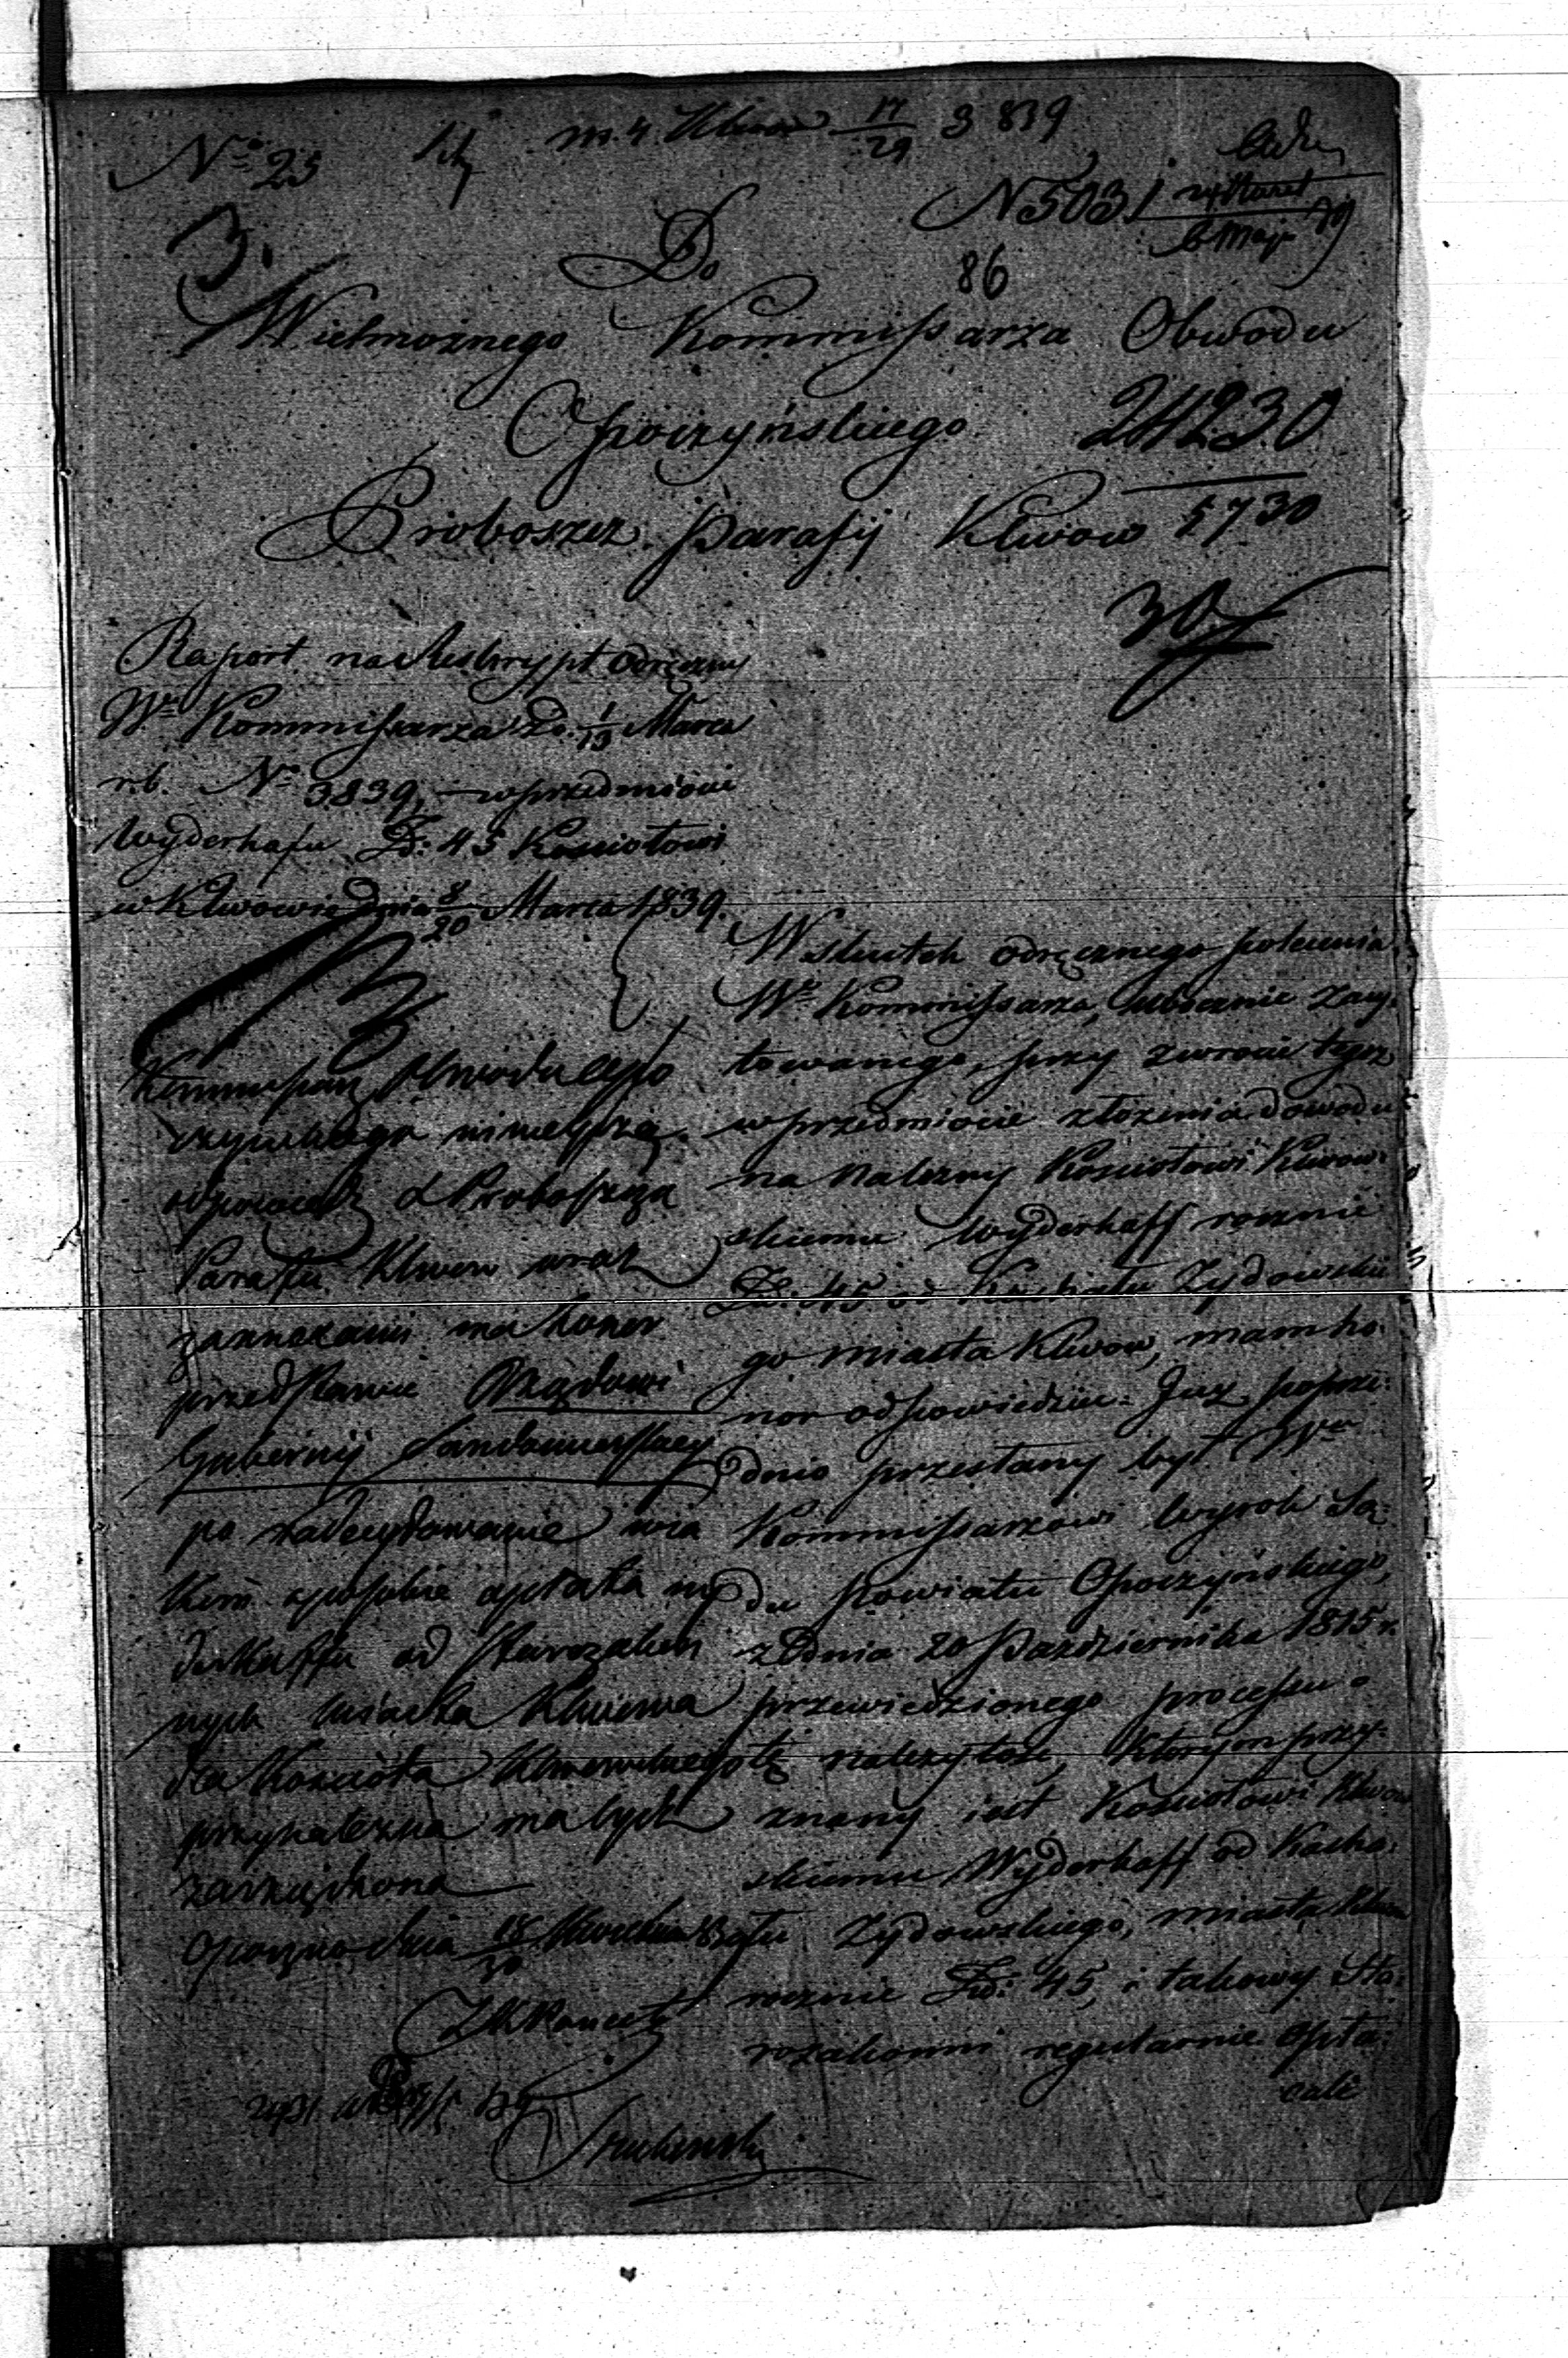 No 23
m. 4. Klwow 17/29 3 839
N 5031 24 Kwiet / 6 Maja 39
3.
86
Do
Wielmożnego Kommissarza Obwodu
Opoczyńskiego
24230
Proboszcz Parafij Klwow
5730
30
Raport na Reskrypt odręczny
Wo Kommissarza D. 1/13 Marca
r.b. No 3839, w przedmiocie
Wyderkafu Zł: 45 Kościołowi
w Klwowie dnia 8/20 Marca 1839.
W skutek odręcznego polecenia
Wo Kommissarza, ubocznie zacy-
towanego, przy zwrocie tegoż,
w przedmiocie złożenia dowodu
na należny Kościołowi Klwow-
skiemu Wyderkaff rocznie
Zł: 45 od Kachału Żydowskie
go miasta Klwow, mam ho-
nor odpowiedzieć: Już poprze-
dnio przesłany był Wu
Kommissarzowi Wyrok Są-
du Powiatu Opoczyńskiego,
z dnia 20 Października 1815 r.
przewiedzionego processu o
tę należytość, którym przy-
znany iest Kościołowi Klwow
skiemu Wyderkaff od Kacha-
łu Żydowskiego, miasta Klwo
rocznie Zł: 45, i takowy Sta-
rozakonni regularnie opła-
cali
Kommissarz Obwodu Opo
czyńskiego ninieyszą
odpowiedź Proboszcza
Parafii Klwow wraz
z annexami ma honor
przedstawić Rządowi
Gubernij Sandomierskiey
po zadecydowanie w ia
kim sposobie opłata wy
derkaffu od Starozakon
nych miasta Klwowa
dla Kościoła Klwowskiego
przynależna ma bydź
zarządzona
Opoczno dnia 18/30 Kwietnia 839